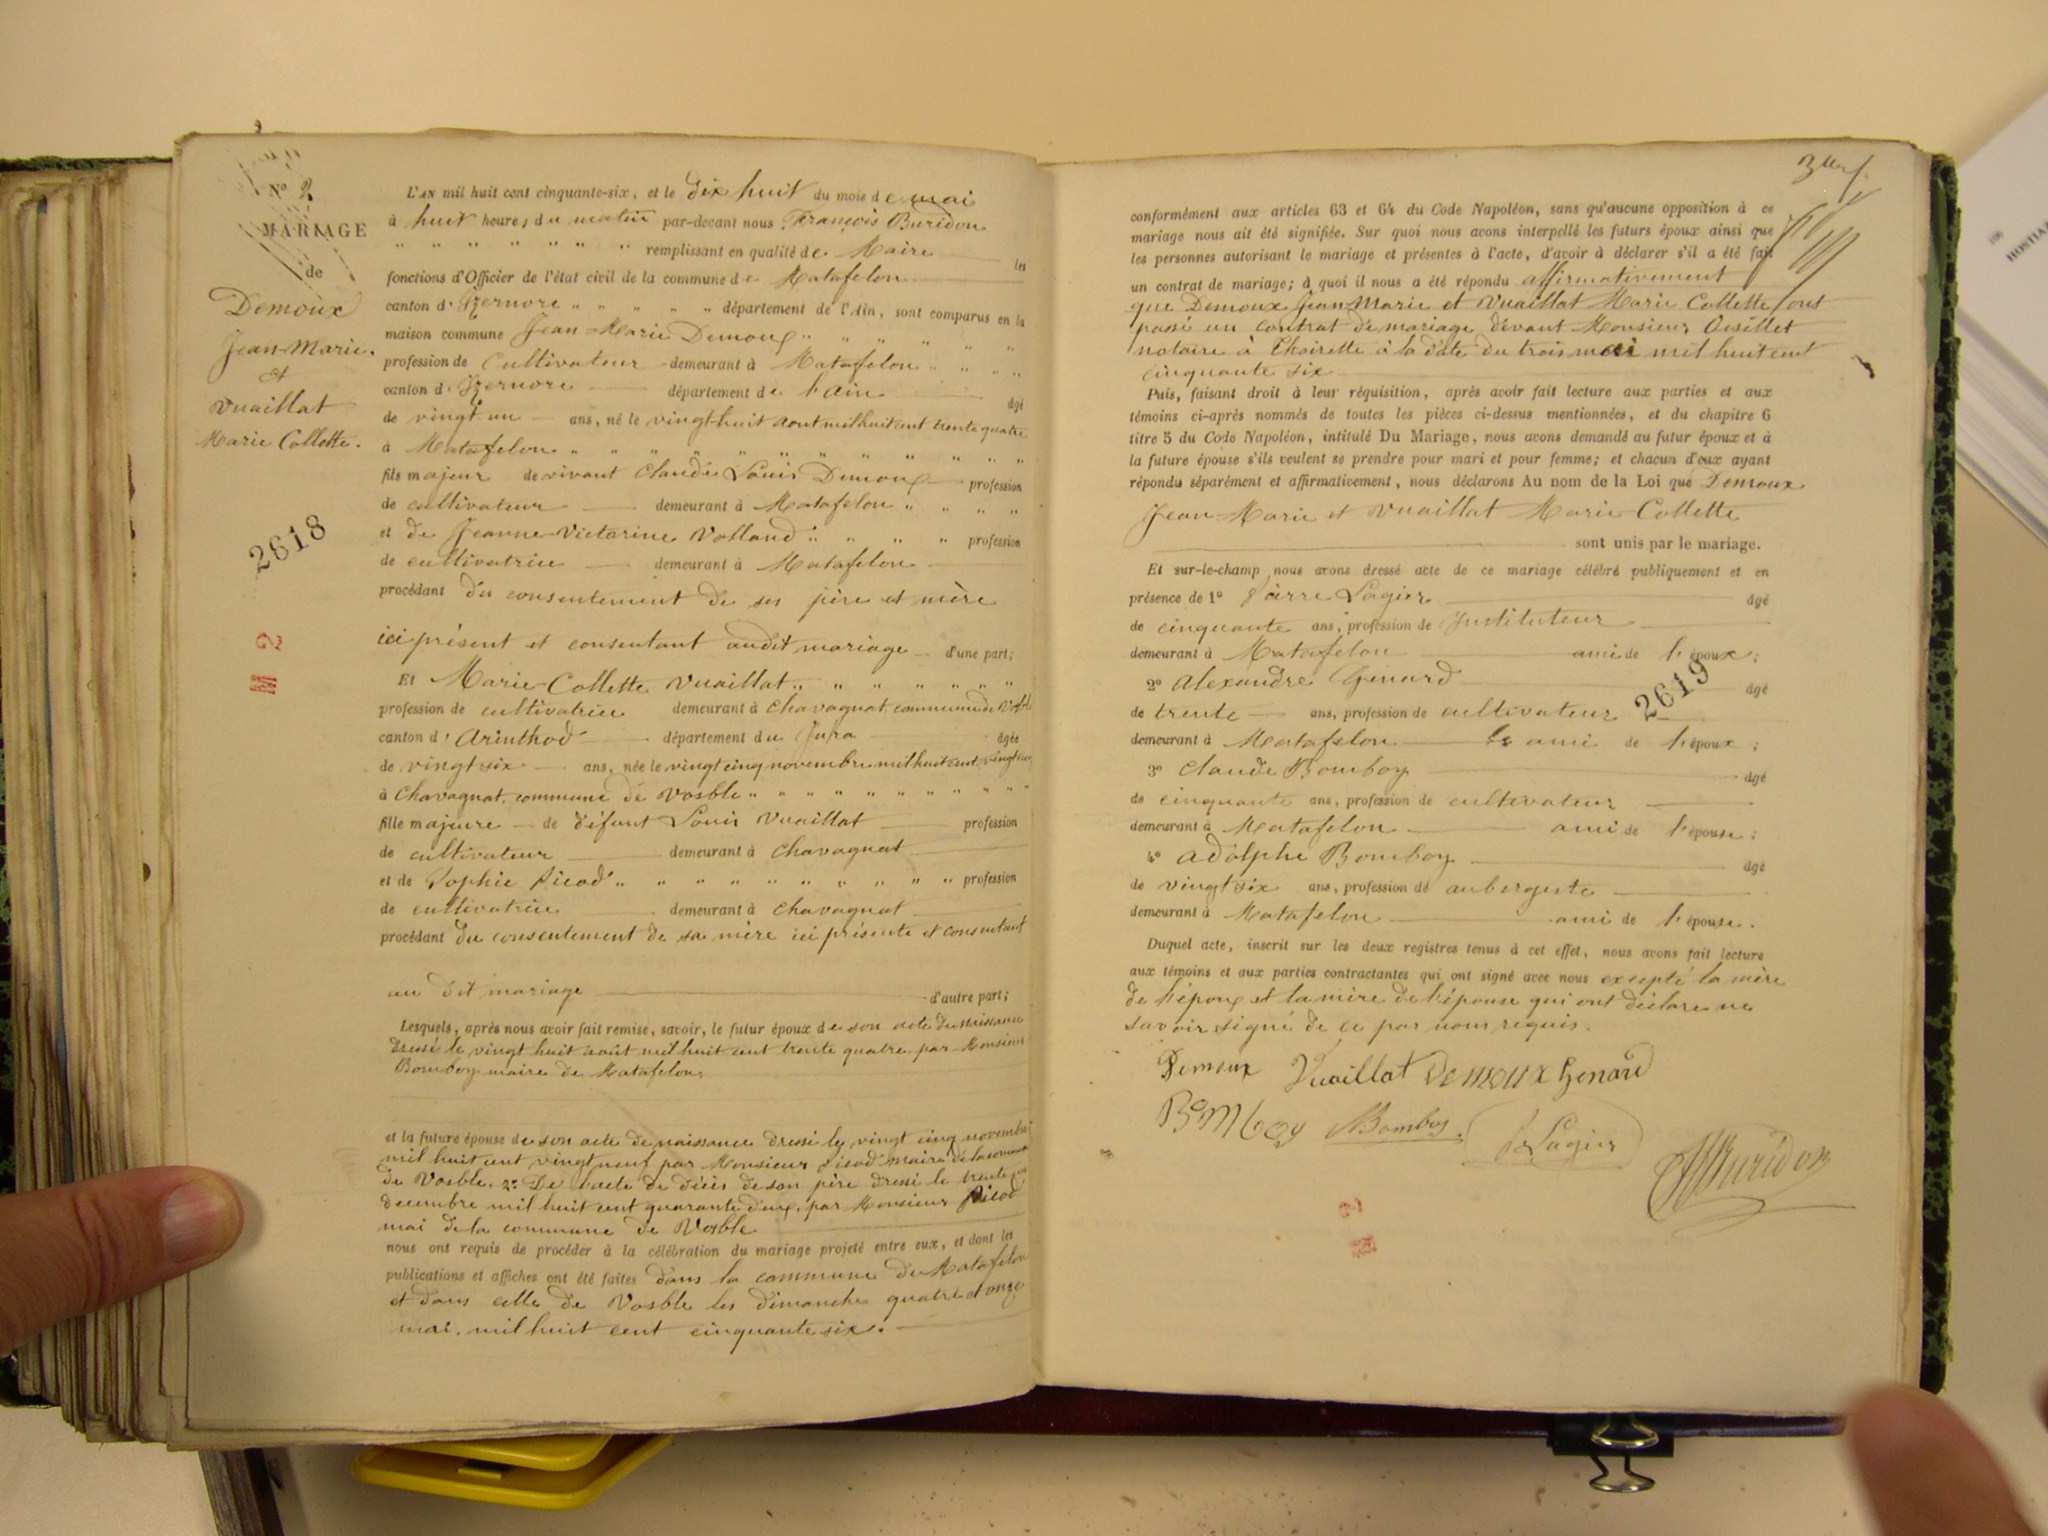 N° 2
MARIAGE
de
Demoux
Jean-Marie.
et
Vuaillat
Marie Collette.
2618
M 2
L'AN mil huit cent cinquante-six, et le dix huit du mois de mai
à huit heures du matin par-devant nous François Buridon
" " " " " " " remplissant en qualité de Maire les
fonctions d'Officier de l'état civil de la commune de Matafelon
canton d'Izernore " " " " " département de l'Ain, sont comparus en la
maison commune Jean-Marie Demoux " " " " " "
profession de Cultivateur demeurant à Matafelon " " " "
canton d'Izernore département de l'ain âgé
de vingt un ans, né le vingt-huit aout mil huit cent trente quatre
à Matafelon " " " " " " " " " " "
fils majeur de vivant Claude Louis Demoux profession
de cultivateur demeurant à Matafelon " " " "
et de Jeanne-Victorine Volland " " " " profession
de cultivatrice demeurant à Matafelon
procédant du consentement de ses père et mère
ici présent et consentant audit mariage d'une part;
Et Marie-Collette Vuaillat " " " " " " "
profession de cultivatrice demeurant à Chavagnat, commune de Vosble
canton d'Arinthod département du Jura âgée
de vingt six ans, née le vingt cinq novembre mil huit cent vingt neuf
à Chavagnat, commune de Vosble " " " " " " " " " "
fille majeure de défunt Louis Vuaillat profession
de cultivateur demeurant à Chavagnat
et de Sophie Picod " " " " " " " " " " profession
de cultivatrice demeurant à Chavagnat
procédant du consentement de sa mère ici présente et consentant
au dit mariage d'autre part;
Lesquels, après nous avoir fait remise, savoir, le futur époux de son acte de naissance
dressé le vingt huit août mil huit cent trente quatre par Monsieur
Bomboy maire de Matafelon
et la future épouse de son acte de naissance dressé le vingt cinq novembre
mil huit cent vingt neuf par Monsieur Picod maire de la commune
de Vosble. 2° De l'acte de décès de son père dressé le trente
decembre mil huit cent quarante deux, par Monsieur Picod
mai de la commune de Vosble
nous ont requis de procéder à la célébration du mariage projeté entre eux, et dont les
publications et affiches ont été faites dans la commune de Matafelon
et dans celle de Vosble les dimanche quatre et onze
mai, mil huit cent cinquante six.
conformément aux articles 63 et 64 du Code Napoléon, sans qu'aucune opposition à ce
mariage nous ait été signifiée. Sur quoi nous avons interpellé les futurs époux ainsi que
les personnes autorisant le mariage et présentes à l'acte, d'avoir à déclarer s'il a été fait
un contrat de mariage; à quoi il nous a été répondu affirmativement
que Demoux Jean Marie et Vuaillat Marie Collette ont
passé un contrat de mariage devant Monsieur
notaire à Thoirette à la date du trois mai mil huit cent
cinquante six
Puis, faisant droit à leur réquisition, après avoir fait lecture aux parties et aux
témoins ci-après nommés de toutes les pièces ci-dessus mentionnées, et du chapitre 6
titre 5 du Code Napoléon, intitulé Du Mariage, nous avons demandé au futur époux et à
la future épouse s'ils veulent se prendre pour mari et pour femme; et chacun d'eux ayant
répondu séparément et affirmativement, nous déclarons Au nom de la Loi que Demoux
Jean-Marie et Vuaillat Marie-Collette
sont unis par le mariage.
Et sur-le-champ nous avons dressé acte de ce mariage célébré publiquement et en
présence de 1° Pierre Lagier âgé
de cinquante ans, profession de Instituteur
demeurant à Matafelon ami de l'époux;
2° Alexandre Genard âgé
de trente ans, profession de cultivateur
2619
demeurant à Matafelon ami de l'époux;
3° Claude Bomboy âgé
de cinquante ans, profession de cultivateur
demeurant à Matafelon ami de l'épouse;
4° Adolphe Bomboy âgé
de vingt six ans, profession de aubergiste
demeurant à Matafelon ami de l'épouse.
Duquel acte, inscrit sur les deux registres tenus à cet effet, nous avons fait lecture
aux témoins et aux parties contractantes qui ont signé avec nous excepté la mère
de l'époux et la mère de l'épouse qui ont déclare ne
savoir signé de ce par nous requis.
Demoux Vuaillat Demoux Genard
BoMboy Bomboy. Lagier
Buridon
M 2
HOSTIA